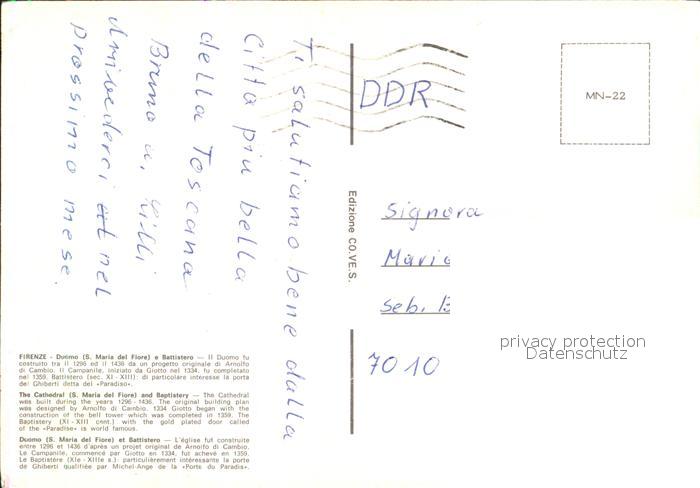 T' salutiamo bene dalla
Città piu bella
della Toscana
Bruno u. Lilli
Arrivederci nel
prossimo mese.
DDR
MN-22
Edizione CO.VE.S.
Signora
Maria
Seb. B
7010
privacy protection
Datenschutz
FIRENZE - Duomo (S. Maria del Fiore) e Battistero — Il Duomo fu
costruito tra il 1296 ed il 1436 da un progetto originale di Arnolfo
di Cambio. Il Campanile, iniziato da Giotto nel 1334, fu completato
nel 1359. Battistero (sec. XI - XIII): di particolare interesse la porta
del Ghiberti detta del «Paradiso».
The Cathedral (S. Maria del Fiore) and Baptistery — The Cathedral
was built during the years 1296 - 1436. The original building plan
was designed by Arnolfo di Cambio. 1334 Giotto began with the
construction of the bell tower which was completed in 1359. The
Baptistery (XI - XIII cent.) with the gold plated door called
of the «Paradise» is world famous.
Duomo (S. Maria del Fiore) et Battistero — L'église fut construite
entre 1296 et 1436 d'après un projet original de Arnolfo di Cambio.
Le Campanile, commencé par Giotto en 1334, fut achevé en 1359.
Le Baptistère (XIe - XIIIe s.): particulièrement intéressante la porte
de Ghiberti qualifiée par Michel-Ange de la «Porte du Paradis».